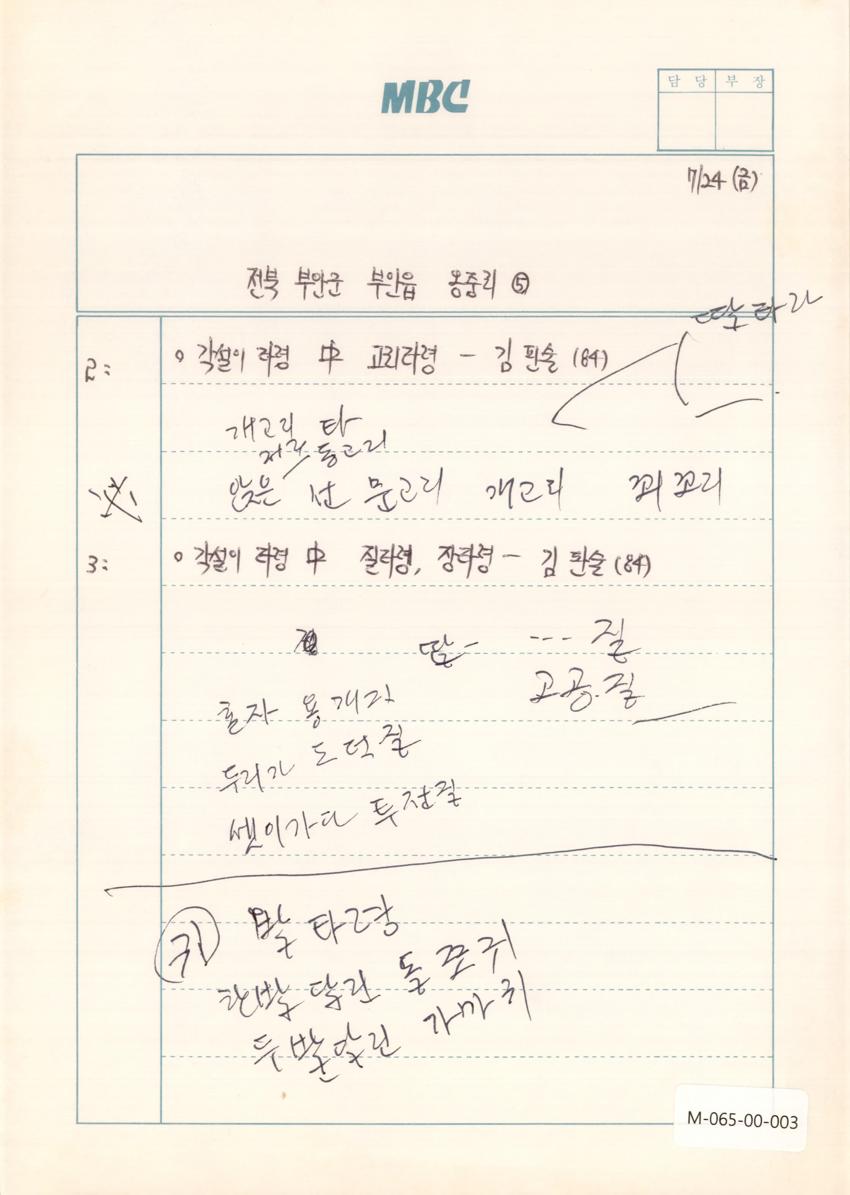 MBC
담 당 부 장
7/24 (금)
전북 부안군 부안읍 옹중리 ⑤
딸 타라
2: ◦ 각설이 타령 中 고리타령 - 김판술 (84)
개고리 타
저리 동고리
앉은 선 문고리 개고리 꾀꼬리
3: ◦ 각설이 타령 中 질타령, 장타령 - 김판술 (84)
딸- --- 질
고공질
혼자 용개질
두리가 도덕질
셋이가다 투전질
귀 발 타령
한발 달린 돌쪼귀
두발달린 가마귀
M-065-00-003